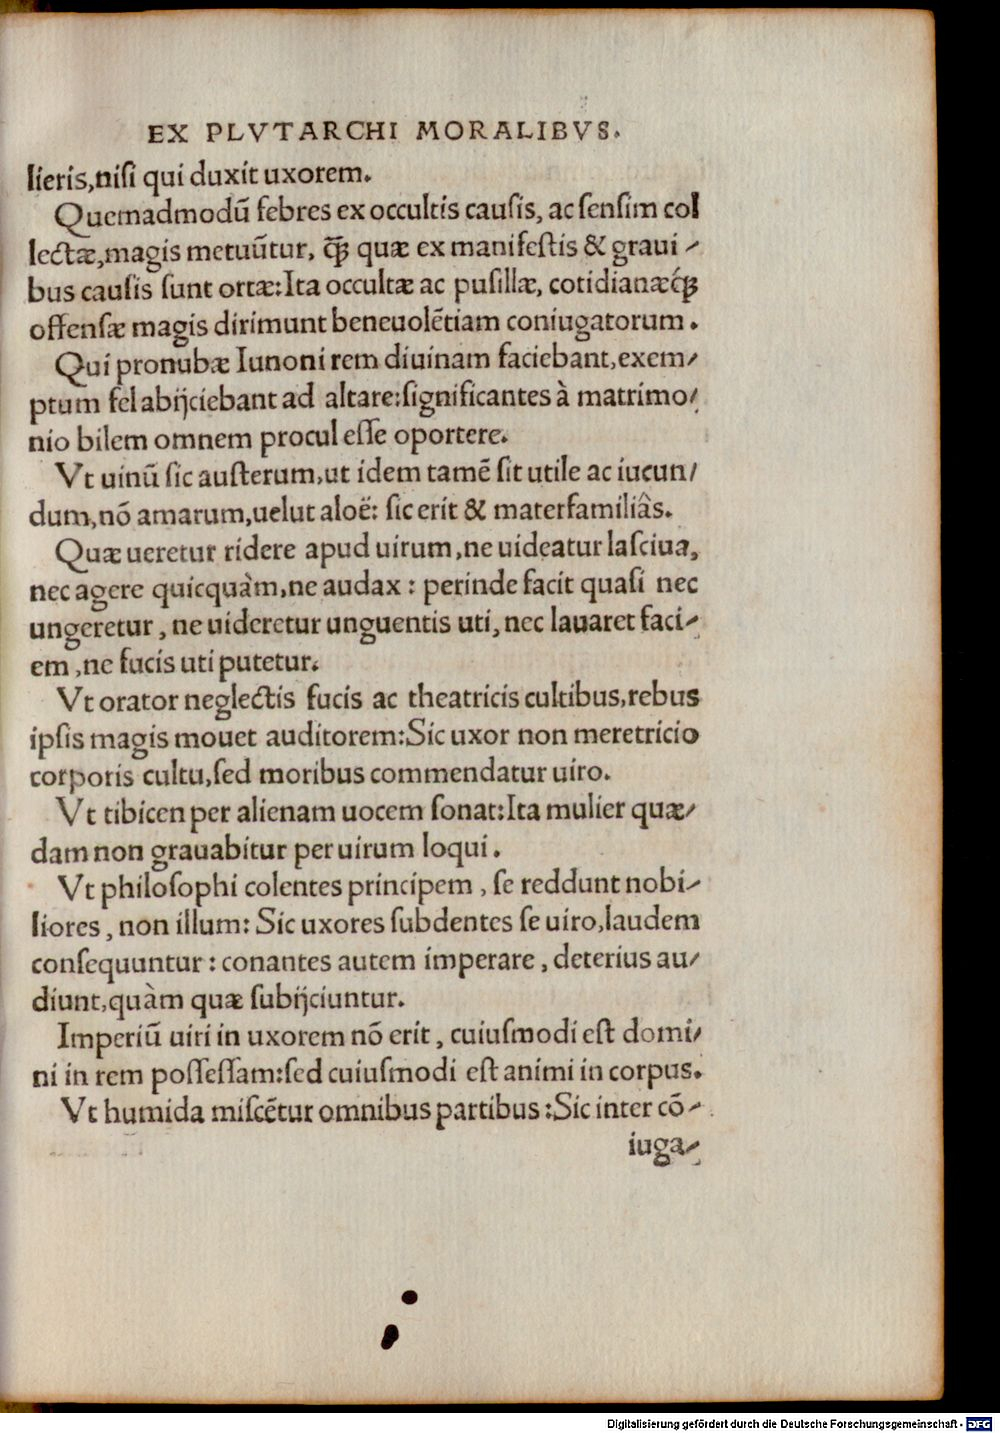 EX PLVTARCHI MORALIBVS.
lieris,nisi qui duxit uxorem.
Quemadmodū febres ex occultis causis, ac sensim col
lectæ,magis metuūtur, q̄ꝫ quæ ex manifestis & graui-
bus causis sunt ortæ:Ita occultæ ac pusillæ, cotidianæq́ꝫ
offensæ magis dirimunt beneuolētiam coniugatorum.
Qui pronubæ Iunoni rem diuinam faciebant,exem-
ptum fel abijciebant ad altare:significantes à matrimo-
nio bilem omnem procul esse oportere.
Vt uinū sic austerum,ut idem tamē sit utile ac iucun-
dum,nō amarum,uelut aloë: sic erit & materfamiliâs.
Quæ ueretur ridere apud uirum,ne uideatur lasciua,
nec agere quicquàm,ne audax: perinde facit quasi nec
ungeretur, ne uideretur unguentis uti, nec lauaret faci-
em,ne fucis uti putetur.
Vt orator neglectis fucis ac theatricis cultibus,rebus
ipsis magis mouet auditorem:Sic uxor non meretricio
corporis cultu,sed moribus commendatur uiro.
Vt tibicen per alienam uocem sonat:Ita mulier quæ-
dam non grauabitur per uirum loqui.
Vt philosophi colentes principem, se reddunt nobi-
liores, non illum: Sic uxores subdentes se uiro,laudem
consequuntur: conantes autem imperare, deterius au-
diunt,quàm quæ subijciuntur.
Imperiū uiri in uxorem nō erit, cuiusmodi est domi-
ni in rem possessam:sed cuiusmodi est animi in corpus.
Vt humida miscētur omnibus partibus:Sic inter cō-
iuga-
Digitalisierung gefördert durch die Deutsche Forschungsgemeinschaft - DFG